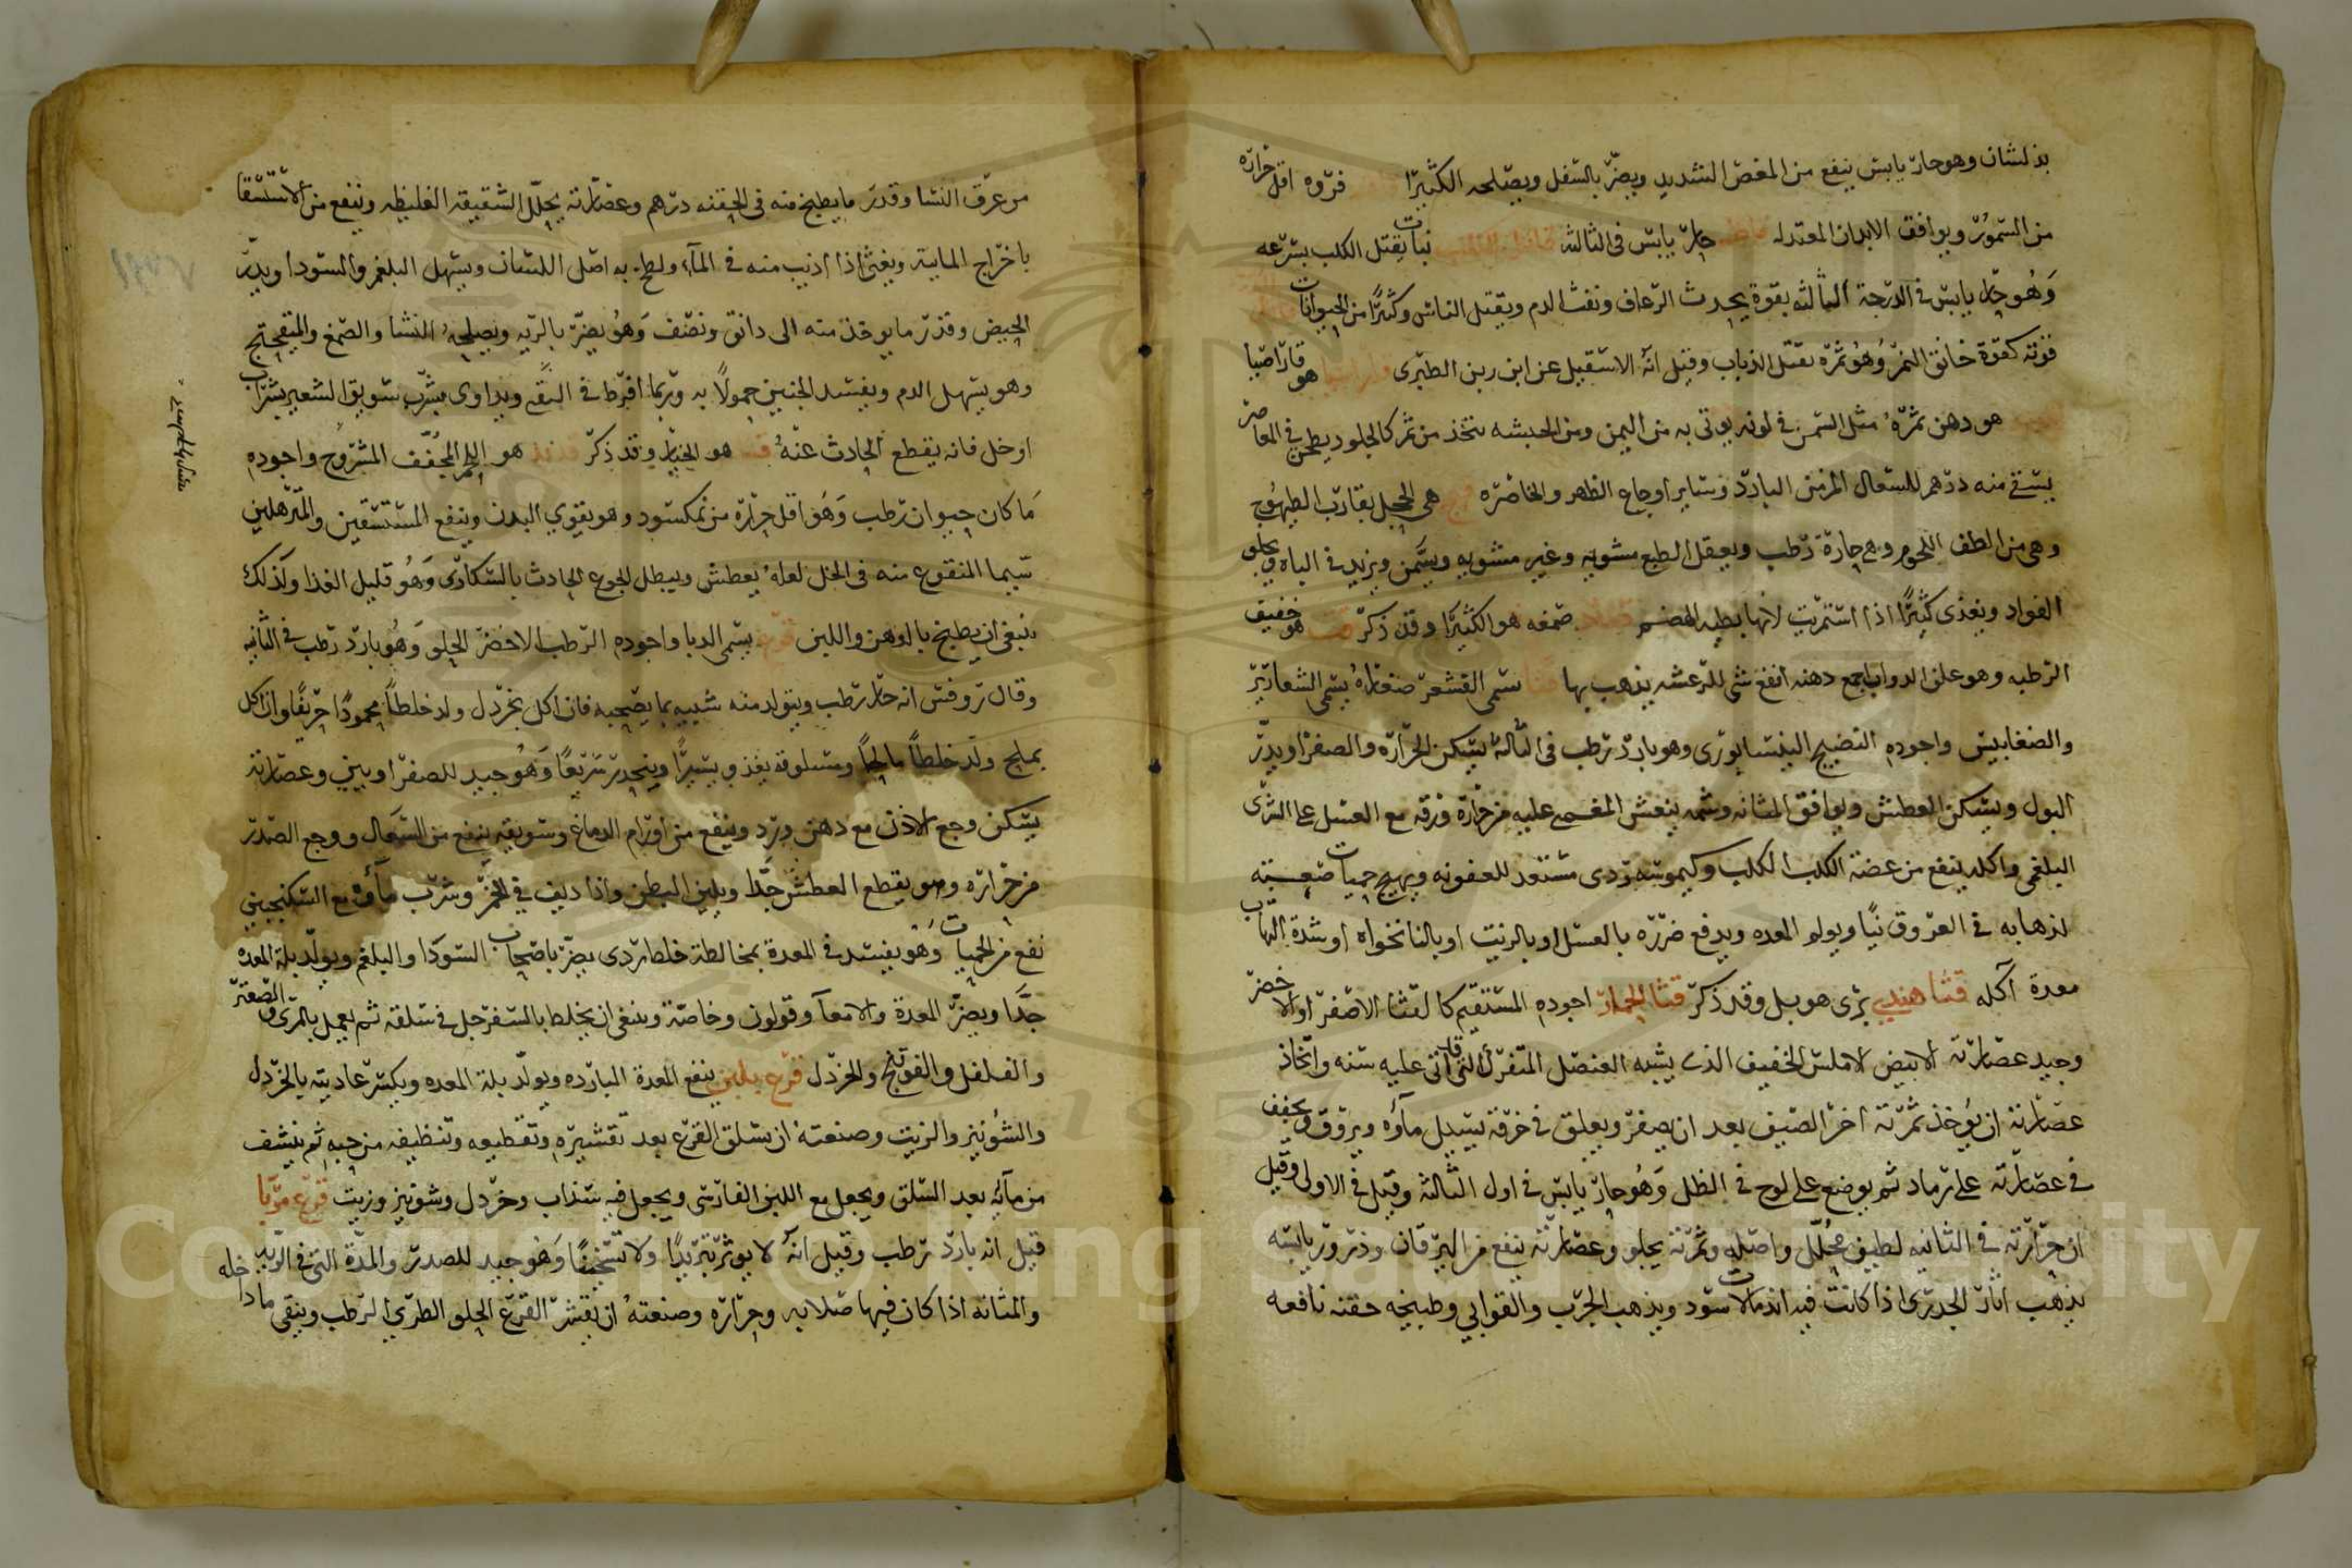 بدلشان وهو حار يابس ينفع من المغص الشديد ويضر بالسفل ويصلحه الكثيرا فروه اقل حرارة
من السمور ويوافق الابدان المعتدله حار يابس في الثالثه قاتل الكلب نبات يقتل الكلب بسرعه
وهو حار يابس في الدرجة الثالثه بقوة يحدث الرعاف ونفث الدم ويقتل الناس وكثيرا من الحيوانات
قوته كقوة خانق النمر وهو ثمرة يقتل الذياب وقيل انه الاشقيل عن ابن ربن الطبري هو قاراصيا
هو دهن ثمرة مثل السمن في لونه يوتى به من اليمن ومن الحبشه يتخذ من ثمر كالجلود يطحن في المعاصر
يسقى منه درهم للسعال المزمن البارد وساير اوجاع الظهر والخاصره هي الحجل يقارب الطيهوج
وهي من الطف اللحوم وهي حارة رطب ويعقل الطبع مشويه وغير مشويه ويسمن ويزيد في الباه ويجلو
الفواد ويغذى كثيرا اذا استمريت لانها بطيه الهضم صمغه هو الكثيرا وقد ذكر هو خفيف
الرطبه وهو علف الدواب اجمع دهنه انفع شي للرعشه يذهب بها قثا يسمى القشعر صغاره يسمى الشعارير
والضغابيس واجوده النضيج النيسابورى وهو بارد رطب في الثالثة يسكن الحرارة والصفرا ويدر
البول ويسكن العطش ويوافق المثانه وشمه ينعش المغمى عليه من حرارة ورقه مع العسل على الشرى
البلغمي واكله ينفع من عضة الكلب الكلب وكيموسه ردى مستعد للعفونه ويهيج حميات صعبة
لذهابه في العروق نيا ويولم المعده ويدفع ضرره بالعسل او بالزيت او بالنانخواه او شدة التهاب
معدة آكله قثا هندي برى هو بل وقد ذكر قثا الحمار اجوده المستقيم كالقثا الاصفر او الاخضر
وجيد عصارته الابيض الاملس الخفيف الذى يشبه العنصل المتفرك التى قد اتى عليه سنه واتخاذ
عصارته ان يؤخذ ثمرته اخر الصيف بعد ان يصفر ويعلق في خرقة ليسيل مآؤه ويروق ويجفف
في عصارته على رماد ثم يوضع على لوح في الظل وهو حار يابس في اول الثالثة وقيل في الاولى وقيل
ان حرارته في الثانيه لطيف محلل واصله وثمرته يجلو وعصارته ينفع من اليرقان وذرور يابسه
يذهب آثار الجدرى اذا كانت فيه اندمالات سود ويذهب الجرب والقوابي وطبيخه حقنه نافعه
من عرق النسا وقدر ما يطبخ منه في الحقنه درهم وعصارته يحلل الشقيقه الغليظه وينفع من الاستسقا
باخراج المايية ويغثي اذا اذيب منه في المآء ولطخ به اصل اللسان ويسهل البلغم والسودا ويدر
الحيض وقدر ما يوخذ منه الى دانق ونصف وهو يضر بالريه ويصلحه النشا والصمغ والميفختج
وهو يسهل الدم ويفسد الجنين حمولا به وربما افرط في التقيه ويداوى بشرب سويق الشعير بشراب
او خل فانه يقطع الحادث عنه هو الخيار وقد ذكر قديد هو اللحم المجفف المشروح واجوده
ما كان حيوان رطب وهو اقل حرارة من نمكسود وهو يقوي البدن وينفع المستسقين والمترهلين
سيما المنقوع منه في الخل لعله يعطش ويبطل الجوع الحادث بالسكارى وهو قليل الغذا ولذلك
ينبغى ان يطبخ بالدهن واللبن قرع يسمى الدبا واجوده الرطب الاخضر الحلو وهو بارد رطب في الثانيه
وقال روفس انه حار رطب ويتولد منه شبيه بما يصحبه فان اكل بخردل ولد خلطا محمودا حريفا وان اكل
بملح ولد خلطا مالحا ومسلوقه يغذو يسيرا وينحدر سريعا وهو جيد للصفراويين وعصارته
يسكن وجع الاذن مع دهن ورد وينفع من اورام الدماغ وسويقه ينفع من السعال ووجع الصدر
من حرارة وهو يقطع العطش جدا ويلين البطن واذا ديف في الخمر وشرب مآؤه مع السكنجبين
نفع من الحميات وهو يفسد في المعدة بمخالطة خلط ردى يضر باصحاب السودا والبلغم ويولد بلة المعده
جدا ويضر المعدة والامعآ وقولون وخاصة وينبغى ان يخلط بالسفرجل في سلقه ثم يعمل بالمرى والصعتر
والفلفل والفوتنج والخردل قرع بلبن ينفع المعدة البارده ويولد بلة المعده ويكسر عاديته بالخردل
والشونيز والزيت وصنعته ان يسلق القرع بعد تقشيره وتقطيعه وتنظيفه من حبه ثم ينشف
من مآئه بعد السلق ويجعل مع اللبن الفارسى ويجعل فيه سذاب وخردل وشونيز وزيت قرع مربا
قيل انه بارد رطب وقيل انه لا يوثر تبريدا ولا تسخينا وهو جيد للصدر والمدة التى في الريه
والمثانه اذا كان فيها صلابه وحرارة وصنعته ان يقشر القرع الحلو الطري الرطب وينقى ما داخله